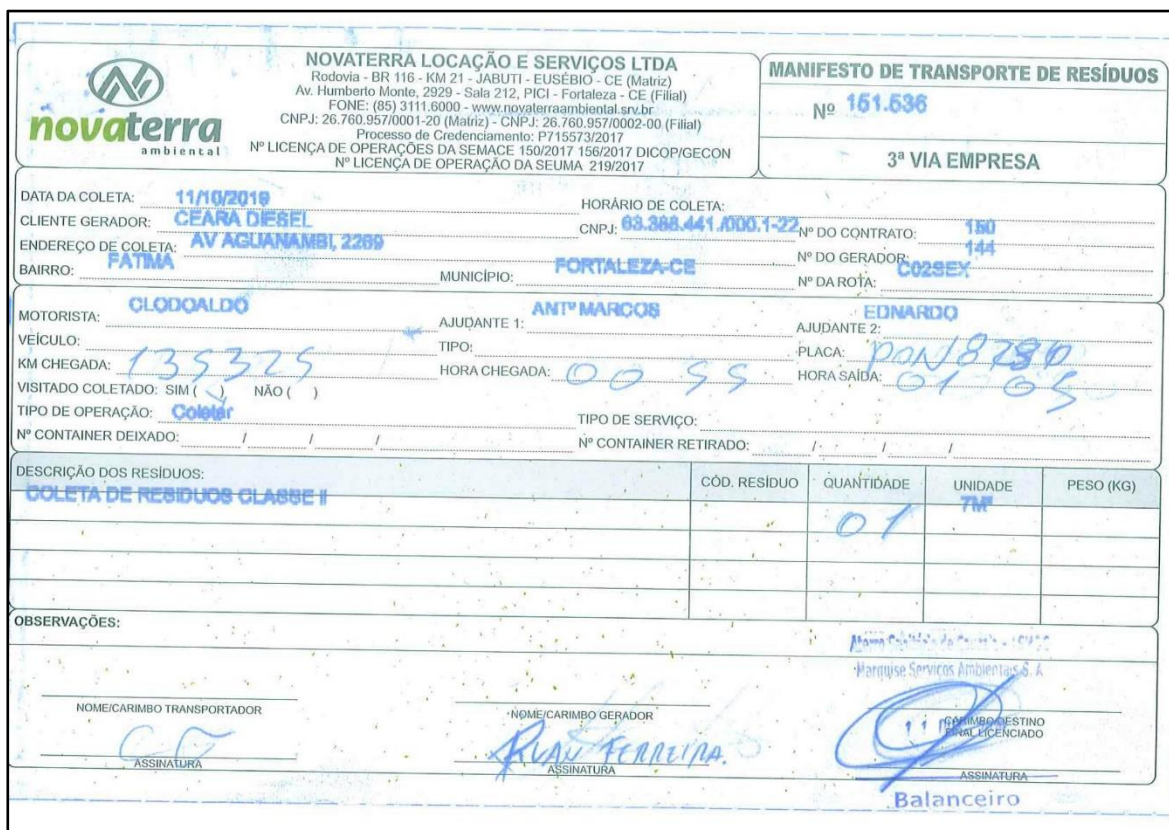 novaterra
ambiental
NOVATERRA LOCAÇÃO E SERVIÇOS LTDA
Rodovia - BR 116 - KM 21 - JABUTI - EUSÉBIO - CE (Matriz)
Av. Humberto Monte, 2929 - Sala 212, PICI - Fortaleza - CE (Filial)
FONE: (85) 3111.6000 - www.novaterraambiental.srv.br
CNPJ: 26.760.957/0001-20 (Matriz) - CNPJ: 26.760.957/0002-00 (Filial)
Processo de Credenciamento: P715573/2017
Nº LICENÇA DE OPERAÇÕES DA SEMACE 150/2017 156/2017 DICOP/GECON
Nº LICENÇA DE OPERAÇÃO DA SEUMA 219/2017
MANIFESTO DE TRANSPORTE DE RESÍDUOS
Nº 151.536
3ª VIA EMPRESA
DATA DA COLETA: 11/10/2019 HORÁRIO DE COLETA:
CLIENTE GERADOR: CEARA DIESEL CNPJ: 63.388.441./000.1-22 Nº DO CONTRATO: 150
ENDEREÇO DE COLETA: AV AGUANAMBI, 2269 Nº DO GERADOR: 144
BAIRRO: FATIMA MUNICÍPIO: FORTALEZA-CE Nº DA ROTA: C02SEX
MOTORISTA: CLODOALDO AJUDANTE 1: ANTº MARCOS AJUDANTE 2: EDNARDO
VEÍCULO: TIPO: PLACA:
KM CHEGADA: 135325 HORA CHEGADA: 00 55 HORA SAÍDA: 01 05
VISITADO COLETADO: SIM ( ) NÃO ( )
TIPO DE OPERAÇÃO: Coletar TIPO DE SERVIÇO:
Nº CONTAINER DEIXADO: / / / Nº CONTAINER RETIRADO: / / /
DESCRIÇÃO DOS RESÍDUOS: CÓD. RESÍDUO QUANTIDADE UNIDADE PESO (KG)
COLETA DE RESIDUOS CLASSE II 01 7M³
OBSERVAÇÕES:
Marquise Serviços Ambientais S. A
NOME/CARIMBO TRANSPORTADOR NOME/CARIMBO GERADOR CARIMBO DESTINO
FINAL LICENCIADO
RUAN FERREIRA.
ASSINATURA ASSINATURA ASSINATURA
Balanceiro